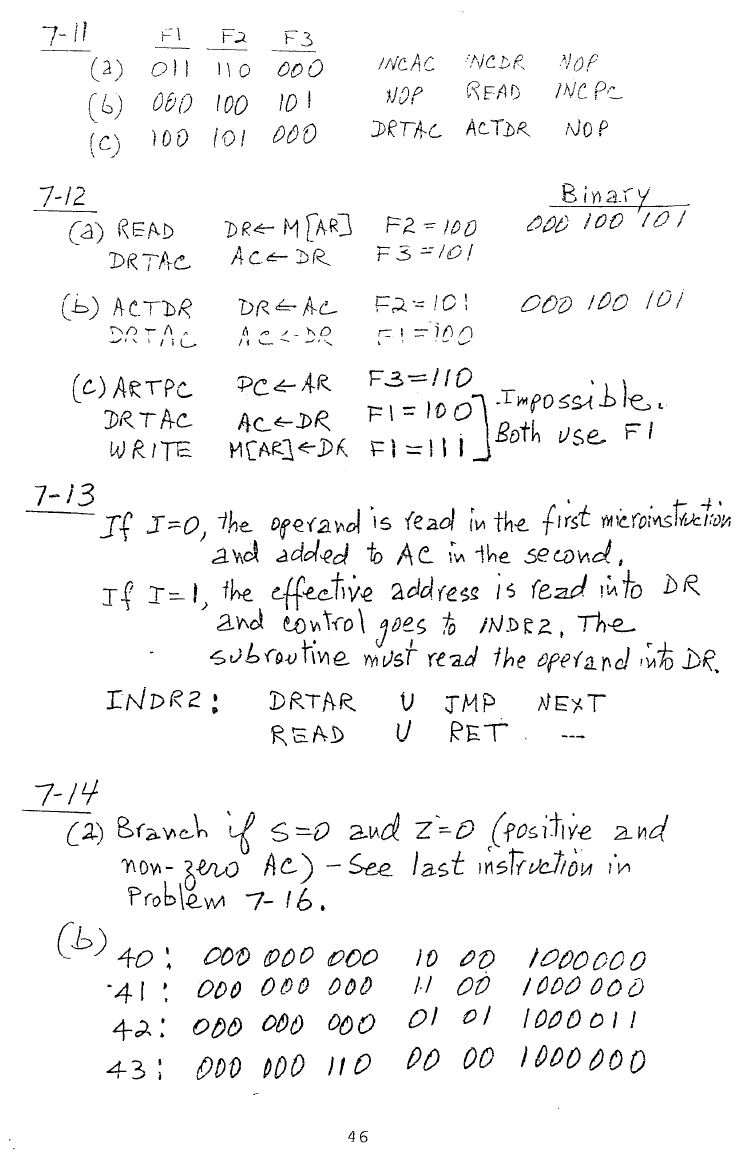 7-11 F1 F2 F3
(a) 011 110 000 INCAC INCDR NOP
(b) 000 100 101 NOP READ INCPC
(c) 100 101 000 DRTAC ACTDR NOP
7-12 Binary
(a) READ DR← M[AR] F2 = 100 000 100 101
DRTAC AC← DR F3 = 101
(b) ACTDR DR← AC F2 = 101 000 100 101
DRTAC AC← DR F1 = 100
(c) ARTPC PC← AR F3 = 110
DRTAC AC← DR F1 = 100 Impossible.
WRITE M[AR]← DR F1 = 111 Both use F1
7-13
If I=0, the operand is read in the first microinstruction
and added to AC in the second.
If I=1, the effective address is read into DR
and control goes to INDR2. The
subroutine must read the operand into DR.
INDR2: DRTAR U JMP NEXT
READ U RET ---
7-14
(a) Branch if S=0 and Z=0 (positive and
non-zero AC) – See last instruction in
Problem 7-16.
(b) 40: 000 000 000 10 00 1000000
41: 000 000 000 11 00 1000000
42: 000 000 000 01 01 1000011
43: 000 000 110 00 00 1000000
46